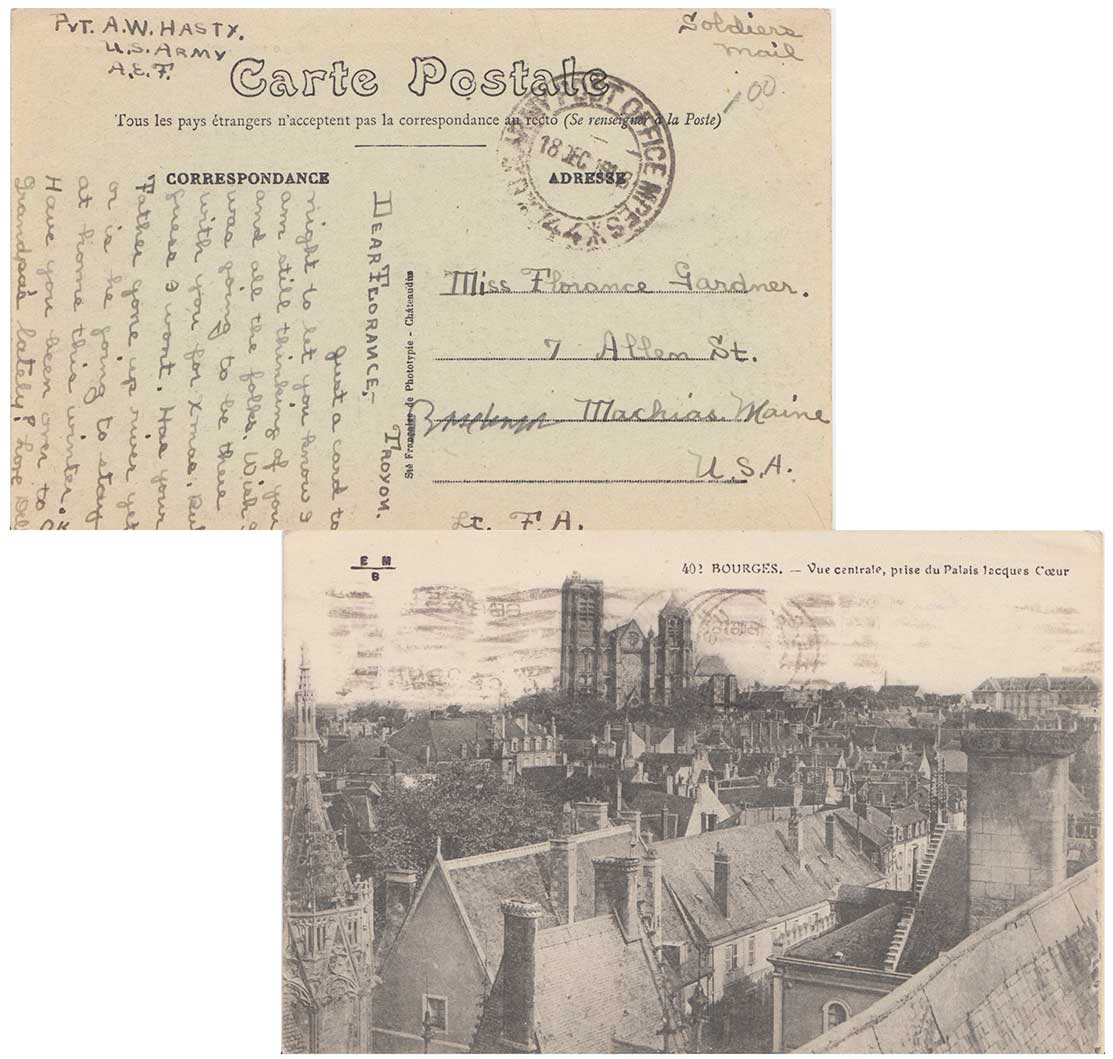 PVT. A.W. HASTY.
U.S. ARMY
A.E.F.
Soldiers
Mail
Carte Postale
Tous les pays étrangers n'acceptent pas la correspondance au recto (Se renseigner à la Poste)
CORRESPONDANCE
ADRESSE
POST OFFICE MPES
18 DEC
TROYON.
DEAR FLORANCE,-
Just a card to
night to let you know I
am still thinking of you
and all the folks. Wish I
was going to be there
with you for Xmas, but
guess I wont. Has your
Father gone up river yet
or is he going to stay
at home this winter.
Have you been over to
Grandpas lately? Love
Sté Française de Phototypie - Châteaudun
Miss Florance Gardner.
7 Allen St.
Machias Maine
U.S.A.
Lt. F.A.
E M
B
402 BOURGES. — Vue centrale, prise du Palais Jacques Cœur